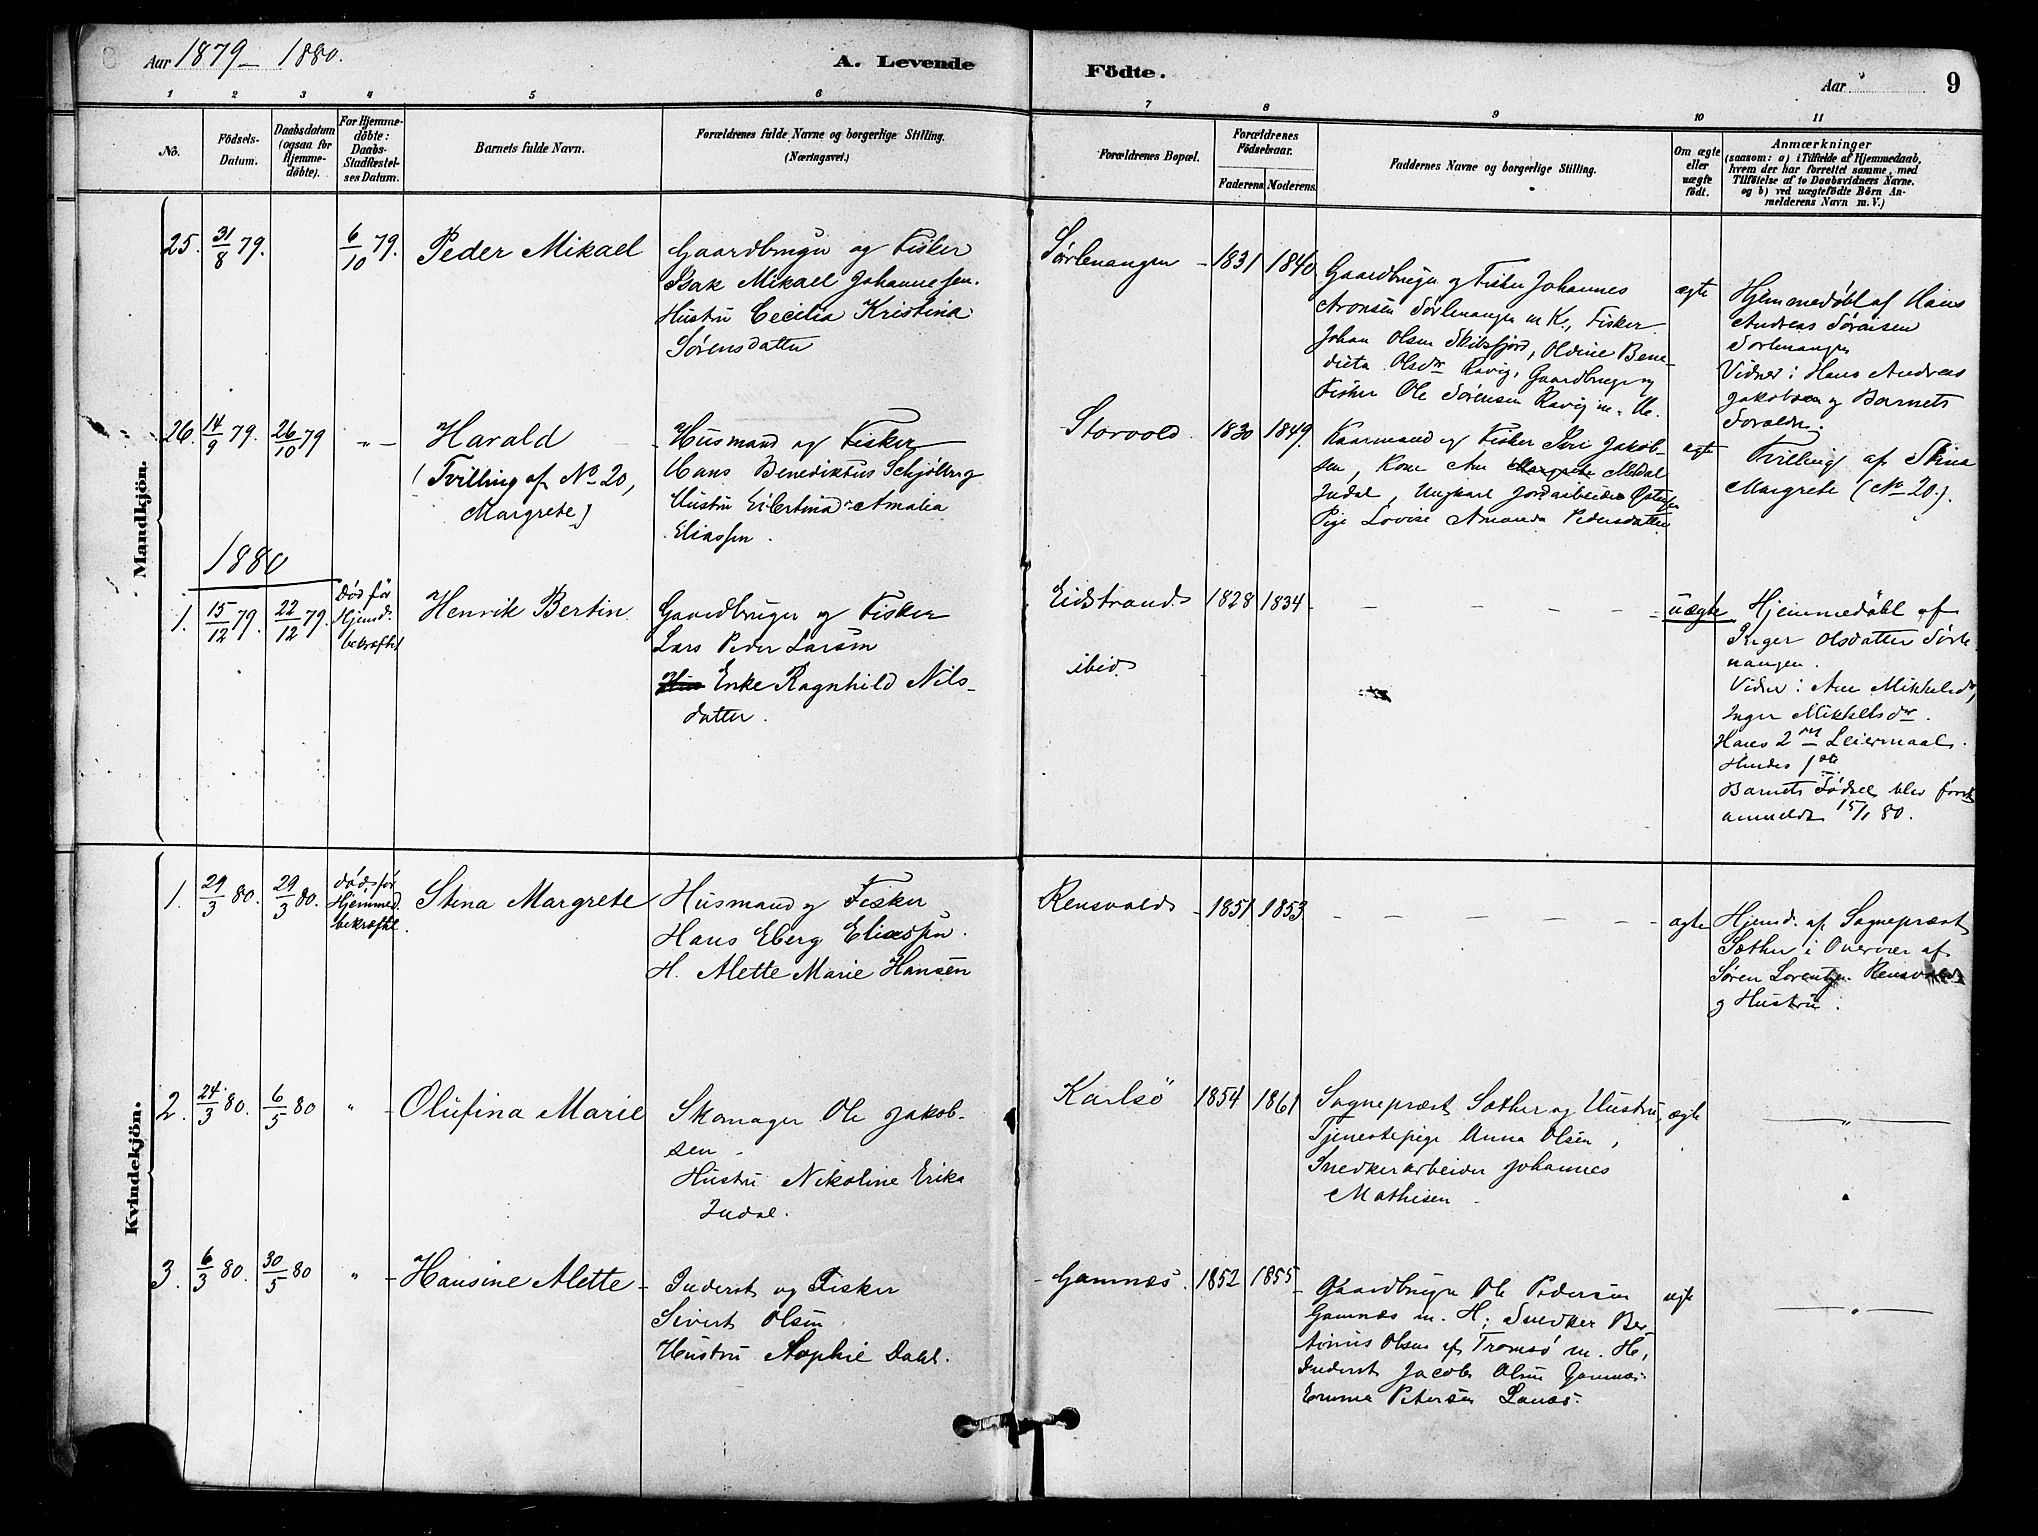 Aar 1879 - 1880.
A. Levende
Födte.
Aar
9
1
2
3
4
5
6
7
8
9
10
11
No.
Födsels-
Datum.
Daabsdatum
(ogsaa for
Hjemme-
döbte).
For Hjemme-
döbte:
Daabs-
Stadfæstel-
ses Datum.
Barnets fulde Navn.
Forældrenes fulde Navne og borgerlige Stilling.
(Næringsvei.)
Forældrenes Bopæl.
Forældrenes
Födselsaar.
Faderens
Moderens
Faddernes Navne og borgerlige Stilling.
Om ægte
eller
uægte
födt.
Anmærkninger
(saasom: a) i Tilfælde af Hjemmedaab,
hvem der har forrettet samme, med
Tilföielse af to Daabsvidners Navne.
og b) ved uægtefödte Börn An-
melderens Navn m. V.)
Mandkjön.
25.
31/8 79.
6/10 79.
Peder Mikael
Gaardbruger og Fisker
Isak Mikael Johannesen.
Hustru Cecilia Kristina
Sørensdatter
Sørlenangen
1831
1840
Gaardbruger og Fisker Johannes
Aronsen Sørlenangen m K., Fisker
Johan Olsen Skibsfjord, Oldine Bene-
dicta Olsdr Ravig, Gaardbruger og
Fisker Ole Sørensen Ravig m.
ægte
Hjemmedøbt af Hans
Andreas Sørensen
Sørlenangen
Vidner: Hans Andreas
Jakobsen og Barnets
Forældre.
26.
14/9 79.
26/10 79
"
Harald
(Tvilling af No 20,
Margrete)
Husmand og Fisker
Hans Benediktus Schjølberg
Hustru Eilertina Amalia
Eliassen.
Storvold
1830
1849.
Kaarmand og Fisker Peri Jakob-
sen, Kone Ane Margrete
Indal, Ungkarl Jordarbeider
Pige Lovise Amanda Pedersdatter
ægte
Tvilling af Stina
Margrete (No 20.).
1880
1.
15/12 79.
22/12 79.
Død før
Hjemd.
bekræftet
Henrik Bertin
Gaardbruger og Fisker
Lars Peder Larsen
Enke Ragnhild Nils-
datter.
Eidstrand
ibid.
1828
1834
uægte
Hjemmedøbt af
Inger Olsdatter Sørle-
nangen.
Vidner: Ane Mikkelsdr,
Inger Mikkelsdr.
Hans 2det Leiermaal.
Hendes 1ste
Barnets Fødsel blev først
anmeldt 15/1 80.
Kvindekjön.
1.
29/3 80.
29/3 80.
død før
Hjemmed.
bekræftet.
Stina Margrete
Husmand og Fisker
Hans Eberg Eliassen.
H. Alette Marie Hansen
Rensvold
1851
1853
ægte
Hjemd. af Sogneprest
Sæther i Overvær af
Søren Lorentzen Rensvold
og Hustru.
2.
24/3 80.
6/5 80
"
Olufina Marie
Skomager Ole Jakob-
sen
Hustru Nikoline Erika
Indal.
Karlsö
1854
1861
Sogneprest Sæther og Hustru,
Tjenestepige Anna Olsen,
Snedkerarbeider Johannes
Mathisen
ægte
"
3.
6/3 80.
30/5 80
"
Hansine Alette
Inderst og Fisker
Sivert Olsen
Hustru Sophie Dahl.
Gamnæs.
1852
1855
Gaardbruger Ole Pedersen
Gamnæs m. H; Snedker Ber-
tinius Olsen af Tromsø m. H,
Inderst Jacob Olsen Gamnæs
Emma Petersen Lanæs.
ægte
"